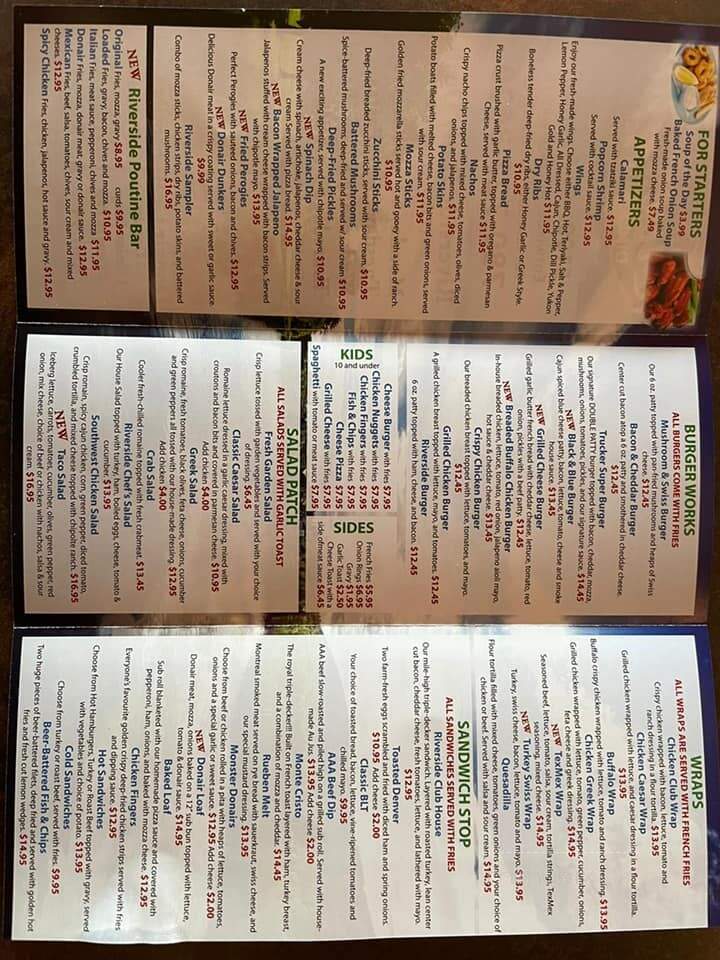 FOR STARTERS
Soup of the Day $3.99
Baked French Onion Soup
Fresh-made onion soup baked
with mozza cheese. $7.49
APPETIZERS
Calamari
Served with tzatziki sauce. $12.95
Popcorn Shrimp
Served with sauce. $12.95
Wings
Enjoy our fresh-made wings. Choose either BBQ, Hot, Teriyaki, Salt & Pepper,
Lemon Pepper, Honey Garlic, All Dressed, Cajun, Chipotle, Dill Pickle, Yukon
Gold and Honey Hot $11.95
Dry Ribs
Boneless tender deep-fried dry ribs, either Honey Garlic or Greek Style.
$10.95
Pizza Bread
Pizza crust brushed with garlic butter, topped with oregano & parmesan
Cheese, served with meat sauce $11.95
Nachos
Crispy nacho chips topped with mixed cheese, tomatoes, olives, diced
onions, and jalapenos. $11.95
Potato Skins
Potato boats filled with melted cheese, bacon bits and green onions, served
with sour cream. $11.95
Mozza Sticks
Golden fried mozzarella sticks served hot and gooey with a side of ranch.
$10.95
Zucchini Sticks
Deep-fried breaded zucchini sticks, served with sour cream. $10.95
Battered Mushrooms
Spice-battered mushrooms, deep-fried and served w/ sour cream $10.95
Deep-Fried Pickles
A new exciting appetizer, served with chipotle mayo. $10.95
NEW Spinach Dip
Cream cheese with spinach, artichoke, jalapenos, cheddar cheese & sour
cream Served with pizza bread. $14.95
NEW Bacon Wrapped Jalapeno
Jalapenos stuffed with cream cheese wrapped with bacon strips. Served
with chipotle mayo. $12.95
NEW Fried Perogies
Perfect Perogies with sauteed onions, bacon and chives. $12.95
NEW Donair Dunkers
Delicious Donair meat in a crispy coating served with sweet or garlic sauce
$9.99
Riverside Sampler
Combo of mozza sticks, chicken strips, dry ribs, potato skins, and battered
mushrooms. $16.95
NEW Riverside Poutine Bar
Original Fries, mozza, gravy $8.95 curds $9.95
Loaded Fries, gravy, bacon, chives and mozza. $10.95
Italian Fries, meat sauce, pepperoni, chives and mozza $11.95
Donair Fries, mozza, donair meat, gravy or donair sauce. $12.95
Mexican Fries, beef, salsa, tomatoes, chives, sour cream and mixed
cheeses. $12.95
Spicy Chicken Fries, chicken, jalapenos, hot sauce and gravy. $12.95
BURGER WORKS
ALL BURGERS COME WITH FRIES
Mushroom & Swiss Burger
Our 6 oz. patty topped with pan-fried mushrooms and heaps of Swiss
cheese. $12.45
Bacon & Cheddar Burger
Center cut bacon atop a 6 oz. patty and smothered in cheddar cheese.
$12.45
Trucker Supreme Burger
Our signature DOUBLE PATTY burger topped with bacon, cheddar, mozza,
mushrooms, onions, tomatoes, pickles, and our signature sauce. $14.45
NEW Black & Blue Burger
Cajun spiced blue cheese & cheddar, bacon, lettuce, tomato, cheese and smoke
house sauce. $13.45
NEW Grilled Cheese Burger
Grilled garlic butter french bread with cheddar cheese, lettuce, tomato, red
onion, pickles, mayo, 6 oz. patty $12.45
NEW Breaded Buffalo Chicken Burger
In-house breaded chicken, lettuce, tomato, red onion, jalapeno aioli mayo,
hot sauce & cheddar cheese. $13.45
Crispy Chicken Burger
Our breaded chicken breast topped with lettuce, tomatoes, and mayo.
$12.45
Grilled Chicken Burger
A grilled chicken breast topped with lettuce, mayo, and tomatoes. $12.45
Riverside Burger
6 oz. patty topped with ham, cheese, and bacon. $12.45
KIDS
10 and under
Cheese Burger with fries $7.95
Chicken Nuggets with fries $7.95
Chicken Fingers with fries $7.95
Fish & Chips with fries $7.95
Cheese Pizza $7.95
Grilled Cheese with fries $7.95
Spaghetti with tomato or meat sauce $7.95
SIDES
French Fries $5.95
Onion Rings $6.95
Gravy $1.95
Garlic Toast $2.50
Cheese Toast with a
side of meat sauce $6.45
SALAD PATCH
ALL SALADS SERVED WITH GARLIC TOAST
Fresh Garden Salad
Crisp lettuce tossed with garden vegetables and served with your choice
of dressing. $6.45
Classic Caesar Salad
Romaine lettuce dressed in a garlic caesar dressing, mixed with
croutons and bacon bits and smothered in parmesan cheese. $10.95
Add chicken $4.00
Greek Salad
Crisp romaine, fresh tomatoes, Greek olives, feta cheese, onions, cucumber
and green peppers all tossed with our house-made dressing. $12.95
Add chicken $4.00
Crab Salad
Cooler fresh-chilled romaine topped with fresh crabmeat. $13.45
Riverside Chef's Salad
Our House Salad topped with turkey, ham, boiled eggs, cheese, tomato &
cucumber. $13.95
Southwest Chicken Salad
Crisp romain, spicy cajun chicken, corn, green pepper, diced tomato,
crumbled tortilla, and mixed cheese mixed with tossed chipotle ranch. $16.95
NEW Taco Salad
Iceberg lettuce, carrots, tomatoes, cucumber, olives, green pepper, red
onion, mix cheese, choice of beef or chicken with nachos, salsa & sour
cream. $16.95
WRAPS
ALL WRAPS ARE SERVED WITH FRENCH FRIES
Chicken Wrap
Crispy chicken wrapped with bacon, lettuce, tomato and
ranch dressing in a flour tortilla. $13.95
Chicken Caesar Wrap
Grilled chicken wrapped with lettuce and caesar dressing in a flour tortilla.
$13.95
Buffalo Wrap
Buffalo crispy chicken wrapped with lettuce, tomato and ranch dressing. $13.95
Chicken Greek Wrap
Grilled chicken wrapped with lettuce, tomato, green pepper, cucumber, onions,
feta cheese and greek dressing. $14.95
NEW TexMex Wrap
Seasoned beef, lettuce, tomato, salsa, sour cream, tortilla strings, TexMex
seasoning, mixed cheese. $14.95
NEW Turkey Swiss Wrap
Turkey, swiss cheese, bacon, lettuce, tomato and mayo. $13.95
Quesadilla
Flour tortilla filled with mixed cheese, tomatoes, green onions and your choice of
chicken or beef. Served with salsa and sour cream. $14.95
SANDWICH STOP
ALL SANDWICHES SERVED WITH FRIES
Riverside Club House
Our mile-high triple-decker sandwich. Layered with roasted turkey, lean center
cut bacon, cheddar cheese, fresh tomatoes, lettuce, and lathered with mayo.
$12.95
Toasted Denver
Two farm-fresh eggs scrambled and fried with diced ham and spring onions.
$10.95 Add cheese $2.00
Classic BLT
Your choice of toasted bread, bacon, lettuce, vine-ripened tomatoes and
chilled mayo. $9.95
AAA Beef Dip
AAA beef slow-roasted and piled high on a grilled sub roll. Served with house-
made Au Jus. $12.95 Add cheese $2.00
Monte Cristo
The royal triple-decker!!! Built on French toast layered with ham, turkey breast,
and a combination of mozza and cheddar. $14.45
Rueben Melt
Montreal smoked meat served on rye bread with sauerkraut, swiss cheese, and
our special mustard dressing. $13.95
Monster Donairs
Choose from beef or chicken served in a pita with heaps of lettuce, tomatoes,
onions and a special garlic or sweet sauce. $12.75 Add cheese $2.00
NEW Donair Loaf
Donair meat, mozza, onions baked on a 12" sub bun topped with lettuce,
tomato & donair sauce. $14.95
Baked Loaf
Sub roll blanketed with our homemade pizza sauce and covered with
pepperoni, ham, onions, and baked with mozza cheese. $12.95
Chicken Fingers
Everyone's favourite golden crispy deep-fried chicken strips served with fries
and dipping sauce. $12.95
Hot Sandwiches
Choose from Hot Hamburgers, Turkey or Roast Beef topped with gravy, served
with vegetables and choice of potato. $13.95
Cold Sandwiches
Choose from turkey, ham or beef served with fries. $9.95
Beer-Battered Fish & Chips
Two huge pieces of beer-battered filets, deep fried and served with golden hot
fries and fresh cut lemon wedges. $14.95